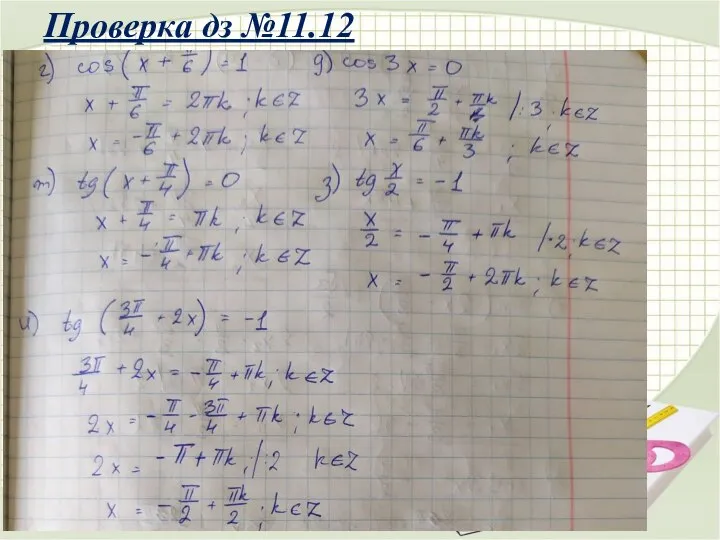 Проверка дз №11.12
г) cos(x + π/6) = 1
x + π/6 = 2πk ; k∈Z
x = -π/6 + 2πk ; k∈Z
д) cos 3x = 0
3x = π/2 + πk /:3 ; k∈Z
x = π/6 + πk/3 ; k∈Z
m) tg(x + π/4) = 0
x + π/4 = πk , k∈Z
x = -π/4 + πk ; k∈Z
з) tg x/2 = -1
x/2 = -π/4 + πk /·2 ; k∈Z
x = -π/2 + 2πk ; k∈Z
и) tg (3π/4 + 2x) = -1
3π/4 + 2x = -π/4 + πk, k∈Z
2x = -π/4 - 3π/4 + πk ; k∈Z
2x = -π + πk ; /:2 k∈Z
x = -π/2 + πk/2 ; k∈Z